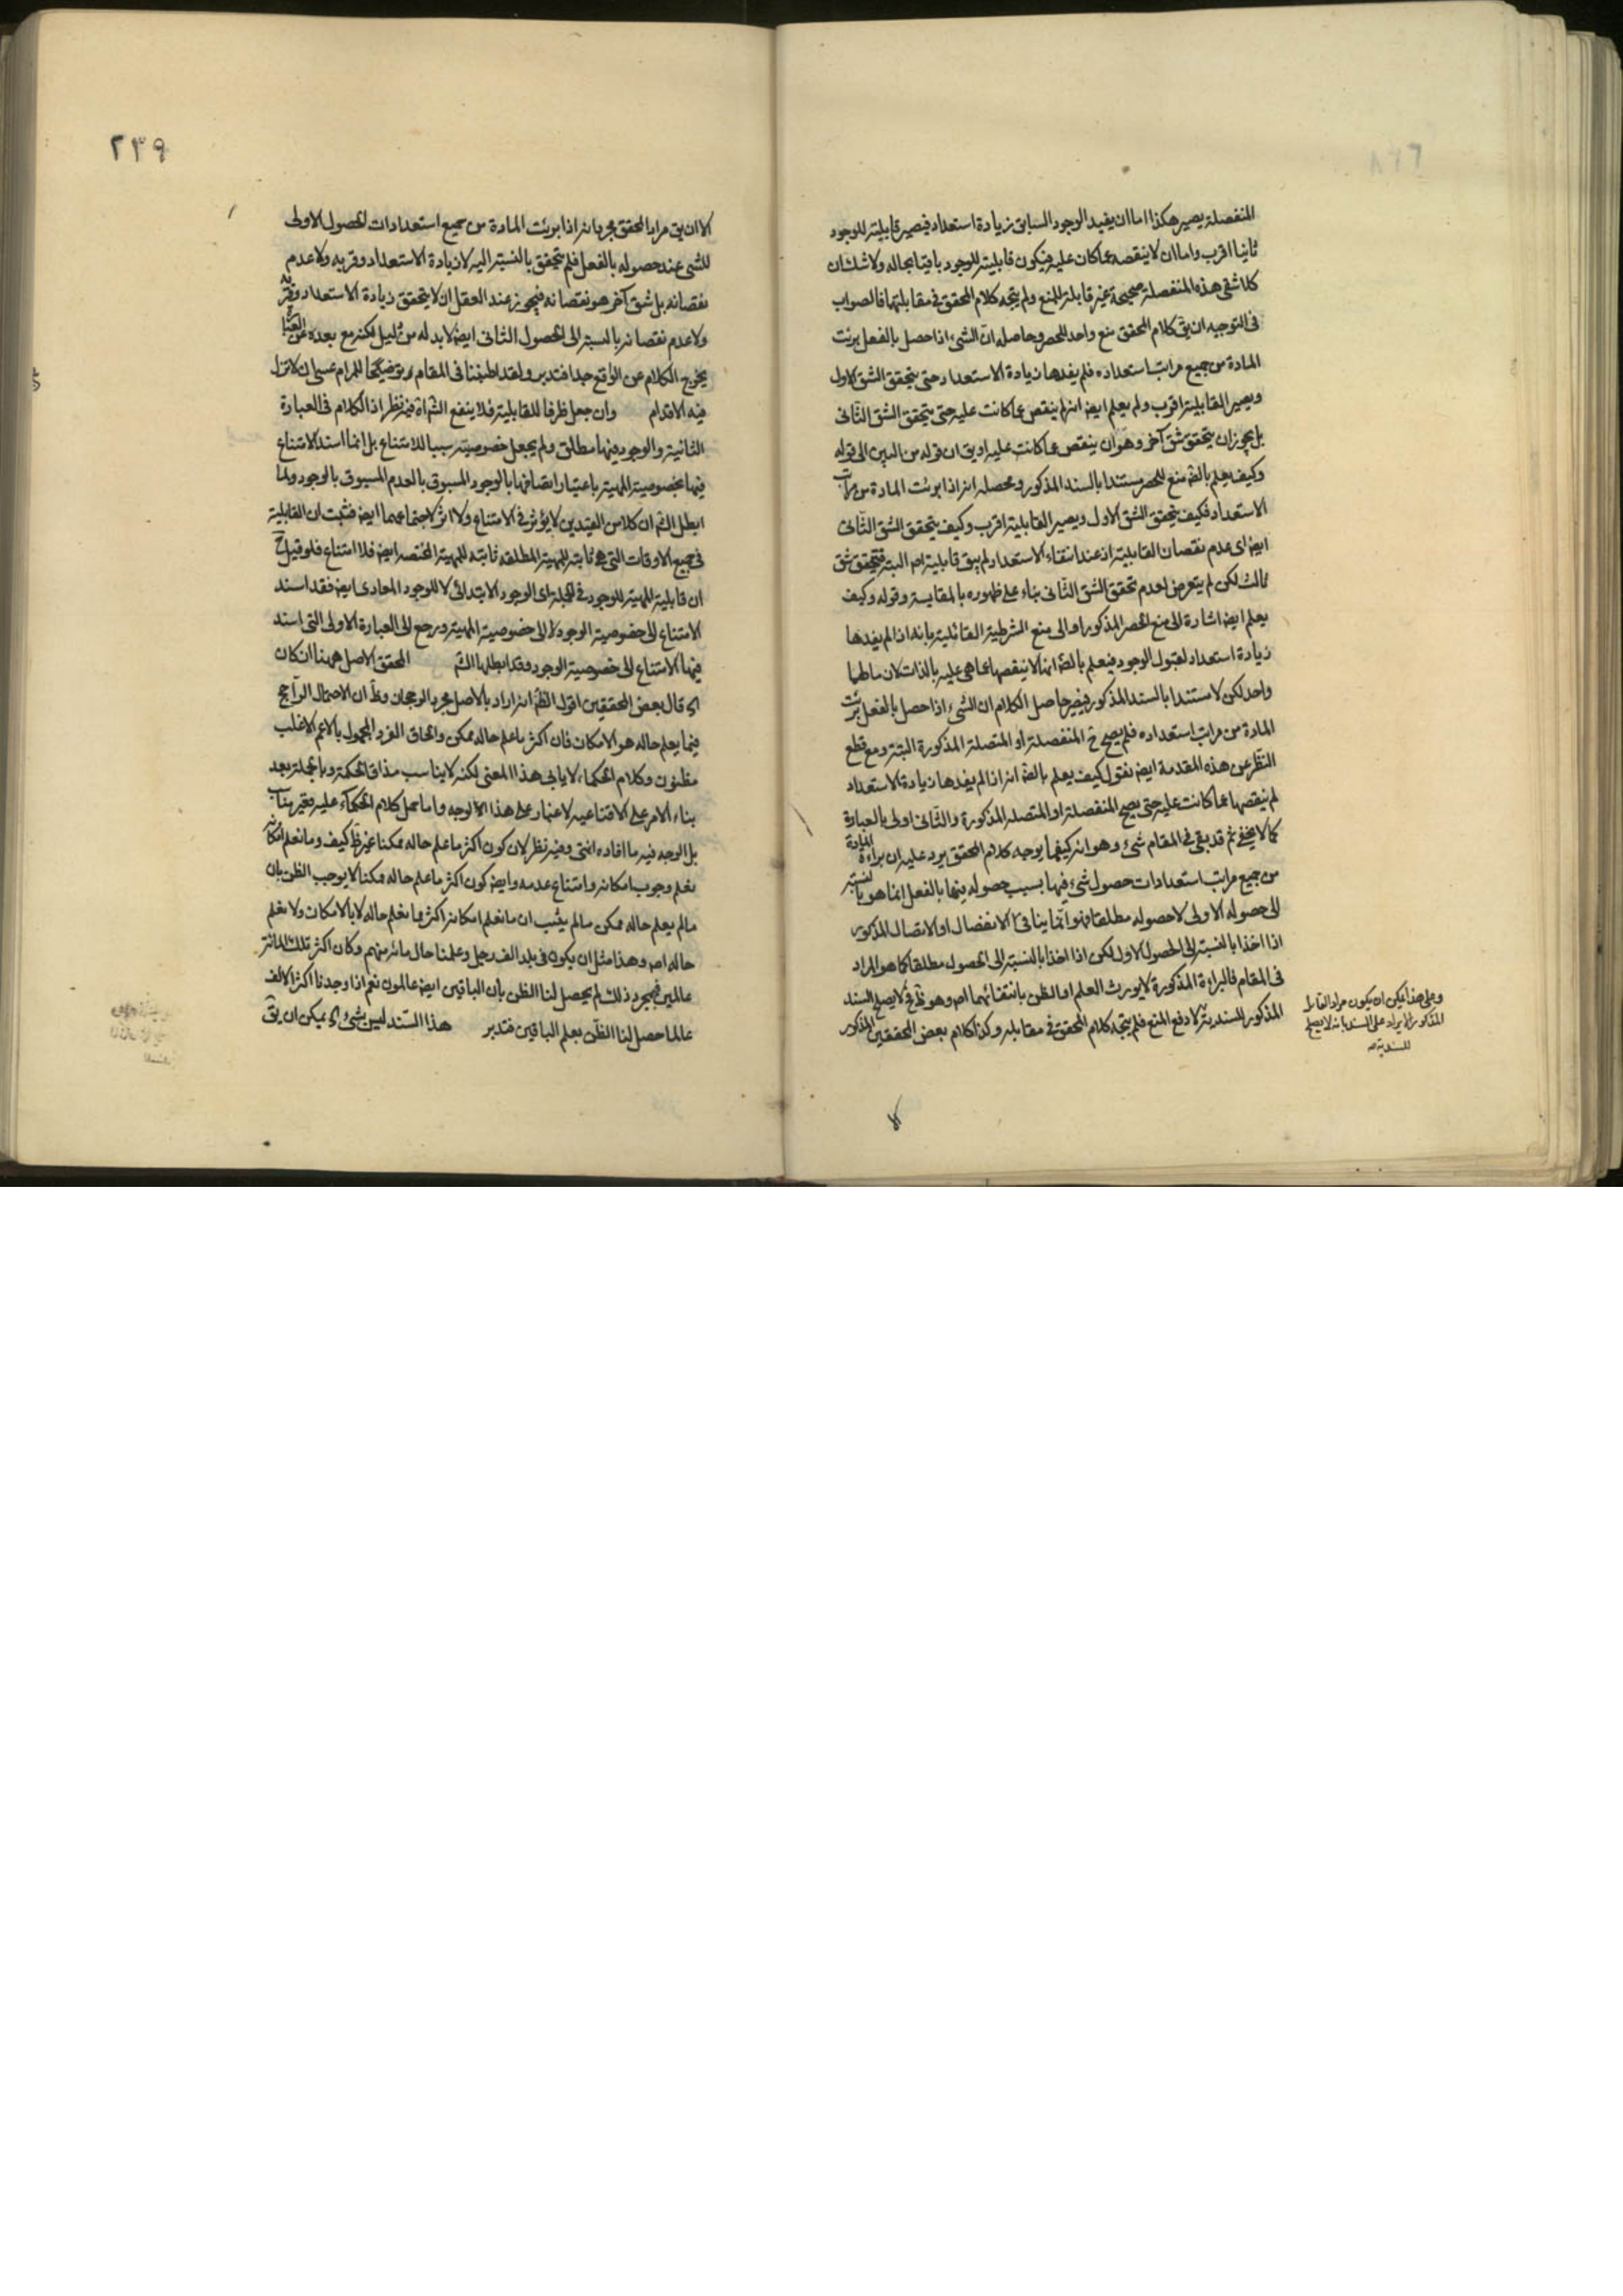 المنفصلة يصير هكذا اما ان يفيد الوجود السابق زيادة استعداد فيصير قابليته للوجود
ثانيا اقرب واما ان لا ينقصه عما كان عليه فيكون قابليته للوجود باقيا بحاله ولا شك ان
كلا شقى هذه المنفصلة صحيحة غير قابلة للمنع ولم يتجه كلام المحقق فى مقابلتها فالصواب
فى التوجيه ان يق كلام المحقق منع واحد للحصر وحاصله ان الشىء اذا حصل بالفعل برئت
المادة من جميع مراتب استعداده فلم يفدها زيادة الاستعداد حتى يتحقق الشق الاول
ويصير القابلية اقرب ولم يعلم ايضا انه لم ينقص عما كانت عليه حتى يتحقق الشق الثانى
بل يجوز ان يتحقق شق آخر وهو ان ينقص عما كانت عليه او يق ان قوله من البين الى قوله
وكيف يعلم بالضه منع للحصر مستندا بالسند المذكور ومحصله انه اذا برئت المادة من مراتب
الاستعداد فكيف يتحقق الشق الاول ويصير القابلية اقرب وكيف يتحقق الشق الثانى
ايضا اى عدم نقصان القابلية اذ عند انتفاء الاستعداد لم يبق قابلية اصه البتة فتحقق شق
ثالث لكن لم يتعرض لعدم تحقق الشق الثانى بناء على ظهوره بالمقايسة وقوله وكيف
يعلم ايضا اشارة الى منع الحصر المذكور او الى منع الشرطية القائلية بانه اذا لم يفدها
زيادة استعداد لقبول الوجود فيعلم بالضه انه لا ينقصها عما هى عليه بالذات لان مالهما
واحد لكن لا مستندا بالسند المذكور فيصير حاصل الكلام ان الشىء اذا حصل بالفعل برئت
المادة من مراتب استعداده فلم يصح ح المنفصلة او المتصلة المذكورة البتة ومع قطع
النظر عن هذه المقدمة ايضا نقول كيف يعلم بالضه انه اذا لم يفدها زيادة الاستعداد
لم ينقصها عما كانت عليه حتى يصح المنفصلة او المتصلة المذكورة والثانى اولى بالعبارة
كما لا يخفى ثم قد بقى فى المقام شىء وهو انه كيفما يوجه كلام المحقق يرد عليه ان براءة المادة
من جميع مراتب استعدادات حصول شىء فيها بسبب حصوله فيها بالفعل انما هو بالنسبة
الى حصوله الاولى لا حصوله مطلقا وهو انما ينافى الانفصال او الاتصال المذكور
اذا اخذا بالنسبة الى الحصول الاول لكن اذا اخذا بالنسبة الى الحصول مطلقا كما هو المراد
فى المقام فالبراءة المذكورة لا يورث العلم او الظن بانتفائهما اصه وهو ظ فح لا يصلح السند
المذكور للسندية لا دفع المنع فلم يتجه كلام المحقق فى مقابله وكذا كلام بعض المحققين المذكور
وعلى هذا يمكن ان يكون مراد القائل
المذكور الايراد على السند بانه لا يصلح
للسندية
٢٣٩
الا ان يق مراد المحقق مجرد انه اذا برئت المادة من جميع استعدادات الحصول الاولى
للشى عند حصوله بالفعل فلم يتحقق بالنسبة اليه لا زيادة الاستعداد وقربه ولا عدم
نقصانه بل شق آخر هو نقصانه فيجوز عند العقل ان لا يتحقق زيادة الاستعداد وقربه
ولا عدم نقصانه بالنسبة الى الحصول الثانى ايضا لا بد له من دليل لكنه مع بعده عن العبارة
يخرج الكلام عن الواقع جدا فتدبر ولقد اطنبنا فى المقام توضيحا للمرام عسى ان لا تزل
فيه الاقدام وان جعل ظرفا للقابلية فلا ينفع الثم اه فيه نظر اذ الكلام فى العبارة
الثانية والوجود فيها مطلق ولم يجعل خصوصيته سببا للامتناع بل انما اسند الامتناع
فيها بخصوصية المهية باعتبار اتصافها بالوجود المسبوق بالعدم المسبوق بالوجود ولما
ابطل الثم ان كلا من القيدين لا يؤثر فى الامتناع ولا اثر لاجتماعهما ايضا فثبت ان القابلية
فى جميع الاوقات التى هى ثابتة للمهية المطلقة ثابتة للمهية المختصة ايضا فلا امتناع فلو قيل ح
ان قابلية المهية للوجود فى الجملة اى الوجود الابتدائى لا للوجود المعادى ايضا فقد اسند
الامتناع الى خصوصية الوجود لا الى خصوصية المهية ورجع الى العبارة الاولى التى اسند
فيها الامتناع الى خصوصية الوجود وقد ابطلها الثم المحقق الاصل ههنا ان كان
اه قال بعض المحققين اقول الظ انه اراد بالاصل مجرد الرجحان وظ ان الاحتمال الراجح
فيما يعلم حاله هو الامكان فان اكثر ما علم حاله ممكن والحاق الفرد المجهول بالاعم الاغلب
مظنون وكلام الحكماء لا يابى هذا المعنى لكنه لا يناسب مذاق الحكمة وبالجملة بعد
بناء الامر على الاقناعية لا غبار على هذا الوجه واما حمل كلام الحكماء عليه فغير مناسب
بل الوجه فيه ما افاده انتهى وفيه نظر لان كون اكثر ما علم حاله ممكنا غير ظ كيف وما نعلم امكانه
نعلم وجوب امكانه وامتناع عدمه وايضا كون اكثر ما علم حاله ممكنا لا يوجب الظن بان
مالم يعلم حاله ممكن مالم يثبت ان ما نعلم امكانه اكثر مما نعلم حاله لا بالامكان ولا نعلم
حاله اصه وهذا مثل ان يكون فى بلد الف رجل وعلمنا حال مائة منهم وكان اكثر تلك المائة
عالمين فمجرد ذلك لم يحصل لنا الظن بان الباقين ايضا عالمون نعم اذا وجدنا اكثر الالف
عالما حصل لنا الظن بعلم الباقين فتدبر هذا السند ليس بشىء اه يمكن ان يق